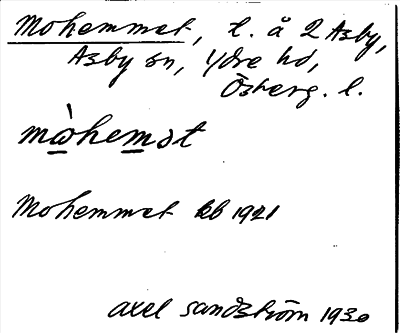 Mohemmet, t. å 2 Asby,
Asby sn, Ydre hd,
Österg. l.
mòhemət
Mohemmet kb 1921
Axel Sandström 1930